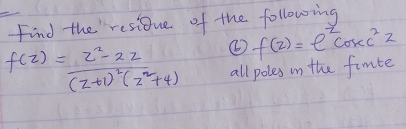 Find the residue of the following
f(z) = z² - 2z / (z+1)² (z²+4)
(b) f(z) = e^z cosec² z
all poles in the finite